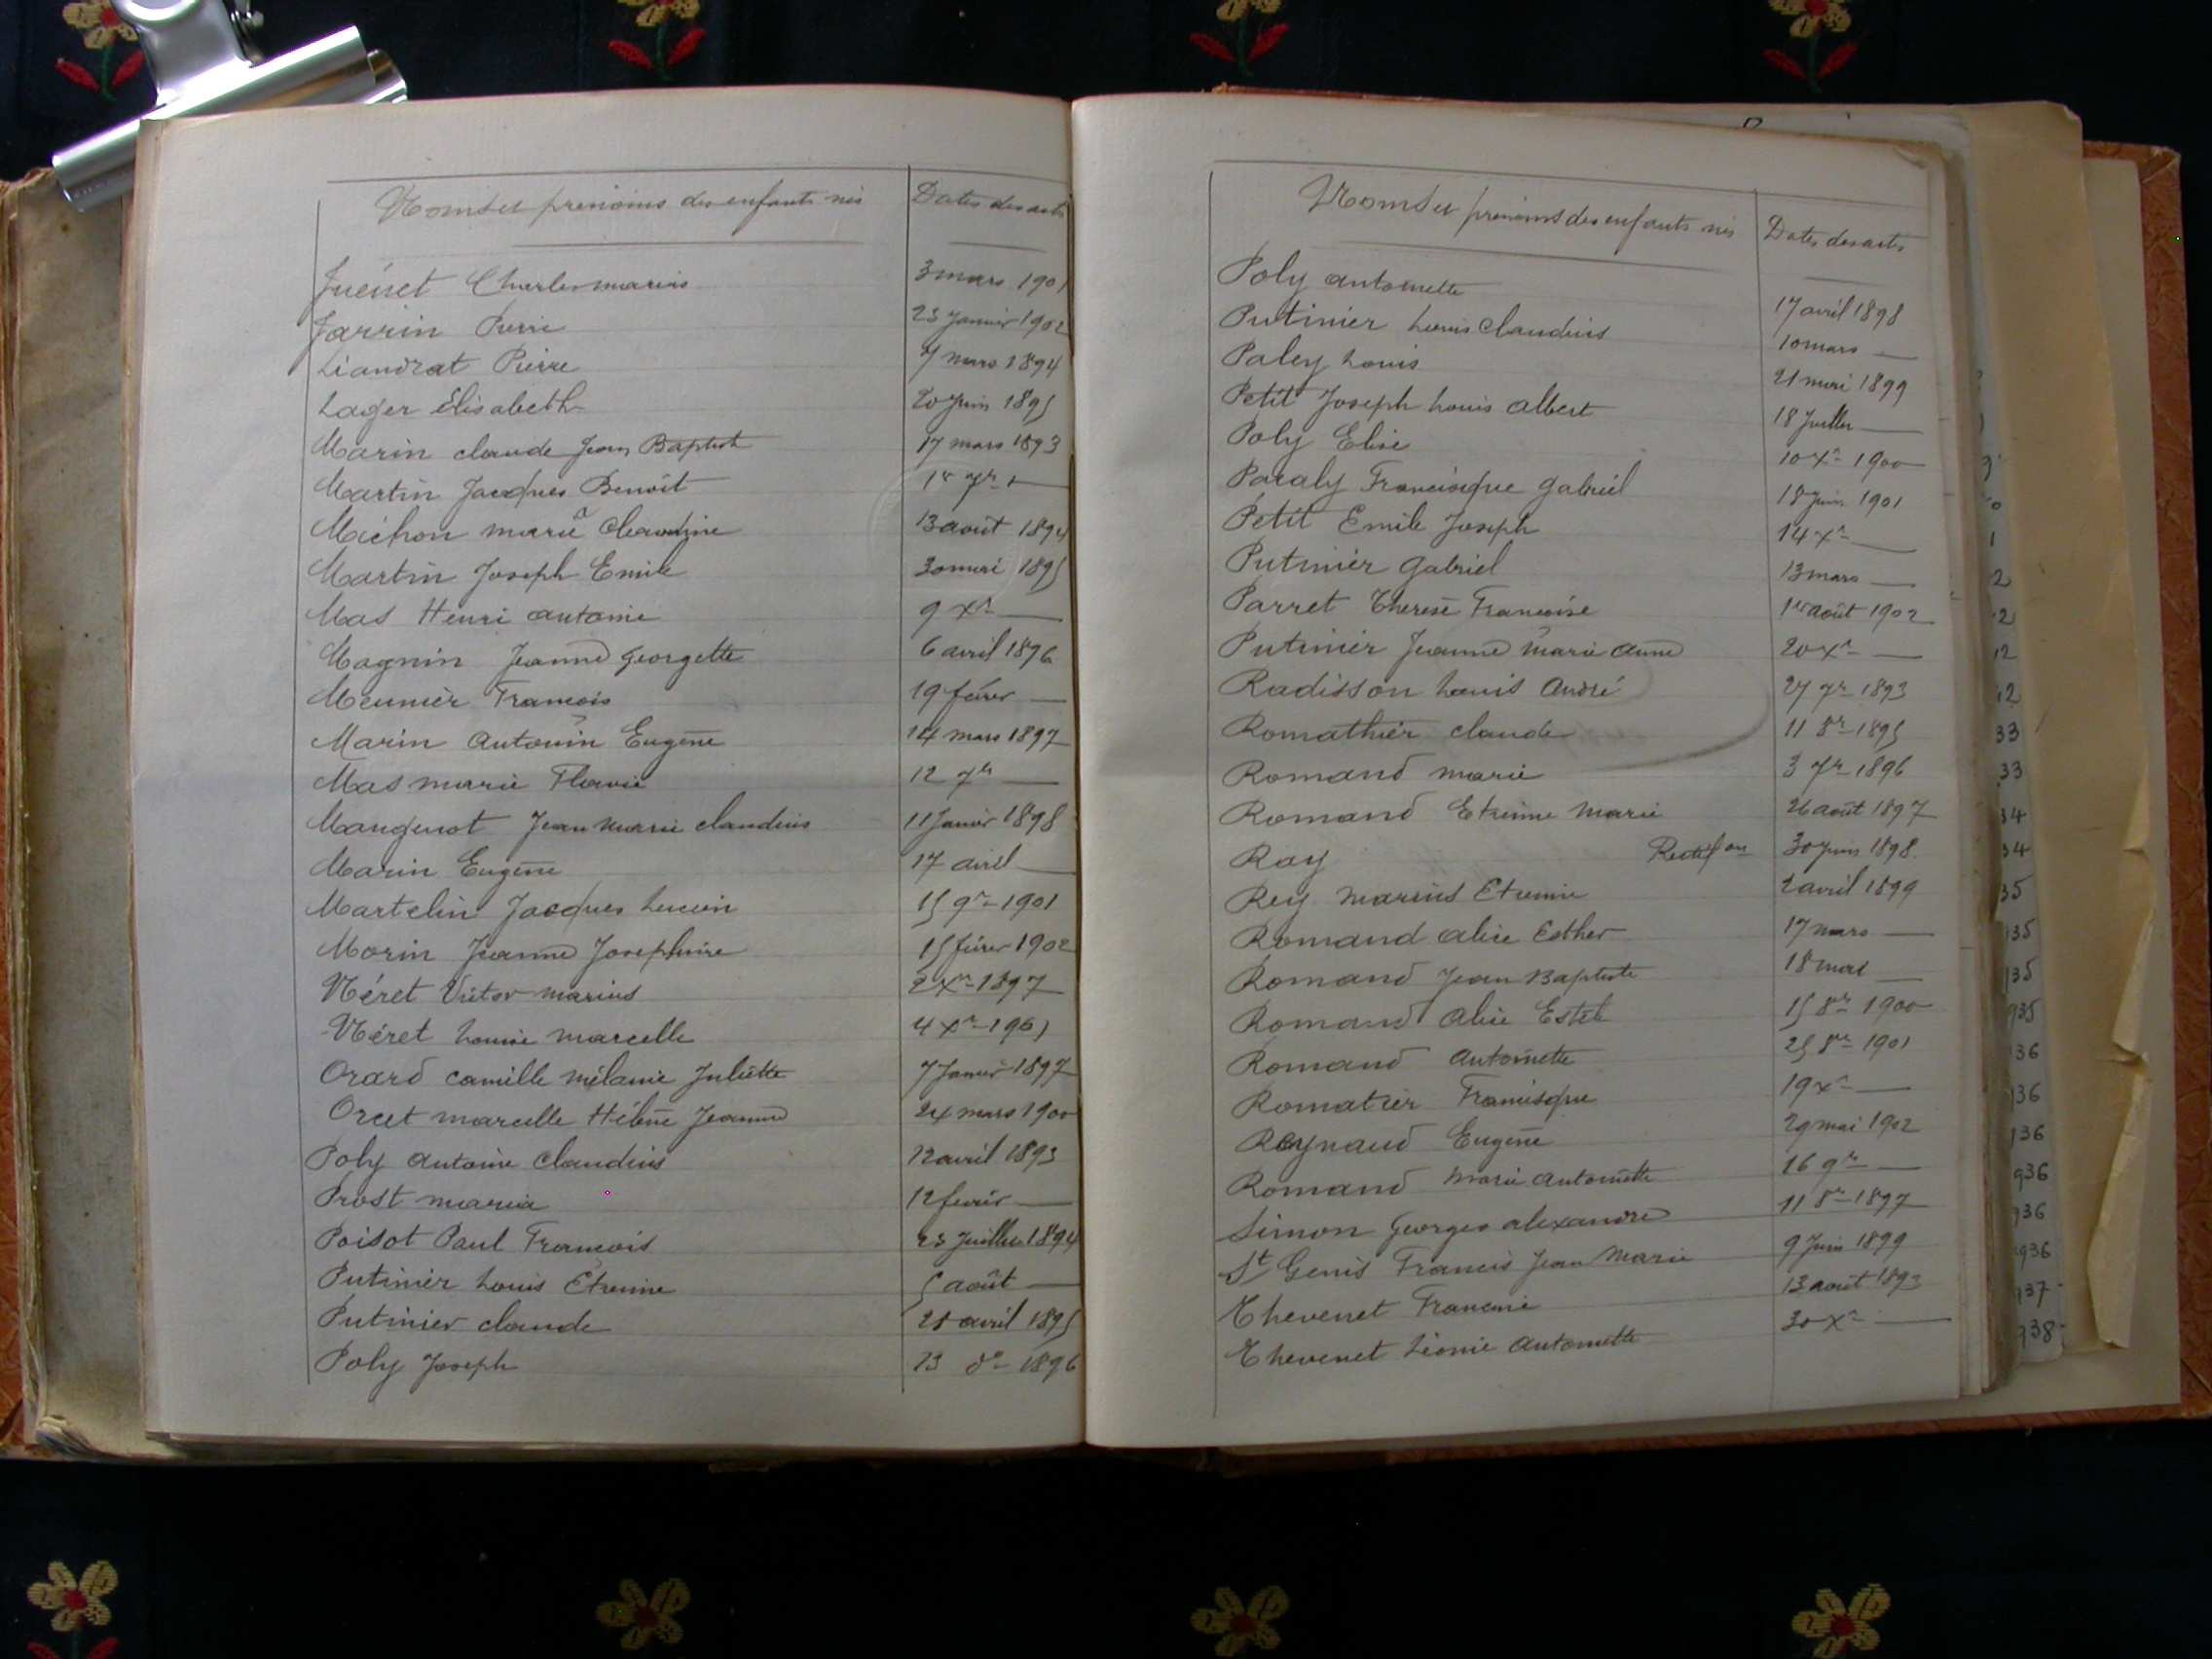 Noms et prénoms des enfants nés Dates des actes
Juénet Charles marius 3 mars 1901
Jarrin Pierre 23 Janvier 1902
Liandrat Pierre 7 mars 1894
Lager Elisabeth 20 Juin 1895
Marin claude Jean Baptiste 17 mars 1893
Martin Jacques Benoît 1er 7re —
Michon marie Claudine 13 août 1894
Martin Joseph Emile 30 mai 1895
Mas Henri antoine 9 Xre —
Magnin Jeanne Georgette 6 avril 1896
Meunier François 19 février —
Marin Antonin Eugène 14 mars 1897
Mas marie Flavie 12 7re —
Mangenot Jean Marie claudius 11 Janvier 1898
Marin Eugène 17 avril —
Martelin Jacques Lucien 15 9re 1901
Morin Jeanne Josephine 15 février 1902
Néret Victor marius 2 Xre 1897
Néret Louise Marcelle 4 Xre 1901
Orard camille mélanie Juliette 7 Janvier 1897
Orcet marcelle Hélène Jeanne 24 mars 1900
Poly antoine Claudius 12 avril 1893
Prost maria 12 fevrier —
Poisot Paul François 23 Juillet 1894
Putinier Louis Etienne 5 août —
Putinier claude 28 avril 1895
Poly Joseph 23 do 1896
Noms et prénoms des enfants nés Dates des actes
Poly antoinette 17 avril 1898
Putinier Louis Claudius 10 mars —
Paley Louis 21 mai 1899
Petit Joseph Louis Albert 18 Juillet —
Poly Elise 10 Xre 1900
Paraly Francisque Gabriel 18 Juin 1901
Petit Emile Joseph 14 Xre —
Putinier Gabriel 13 mars —
Parret Therese Françoise 1er août 1902
Putinier Jeanne Marie Anne 20 Xre —
Radisson Louis André 27 7re 1893
Romathier claude 11 8re 1895
Romand marie 3 7re 1896
Romand Etienne Marie 26 août 1897
Roy Rectif on 30 Juin 1898
Rey Marius Etienne 2 avril 1899
Romand alice Esther 17 mars —
Romand Jean Baptiste 18 mai —
Romand Alice Estele 15 8re 1900
Romand Antoinette 25 8re 1901
Romatier Francisque 19 Xre —
Reynaud Eugène 29 mai 1902
Romand Marie Antoinette 16 9re —
Simon Georges alexandre 11 8re 1897
St Genis Francis Jean Marie 9 Juin 1899
Thevenet Francine 13 août 1893
Thevenet Léonie Antoinette 30 Xre —